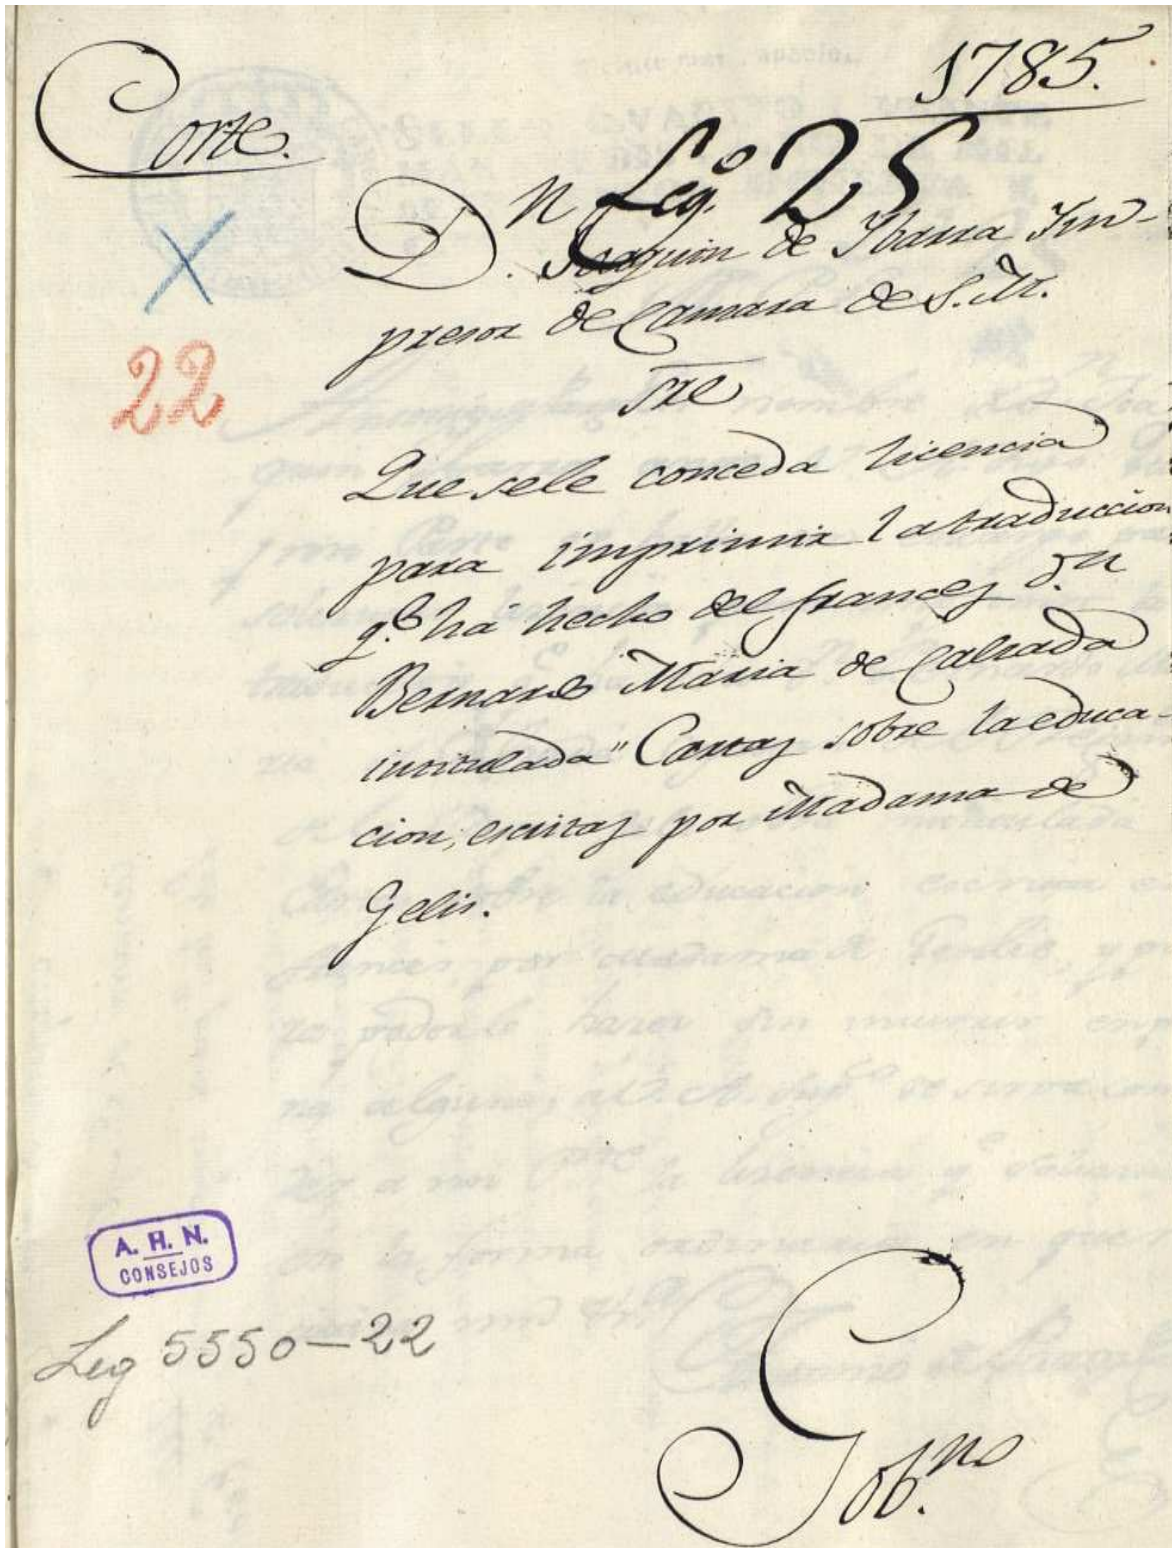 Corte.
1785.
Leg.º 25
22
D.n Joaquin de Ybarra Ym-
presor de Camara de S. M.
sre
Que sele conceda licencia
para imprimir la traduccion
q.e há hecho del frances d.n
Bernardo Maria de Calzada
intitulada "Cartas sobre la educa-
cion, escritas por Madama de
Gelis.
A. H. N.
CONSEJOS
Leg 5550-22
Gob.no